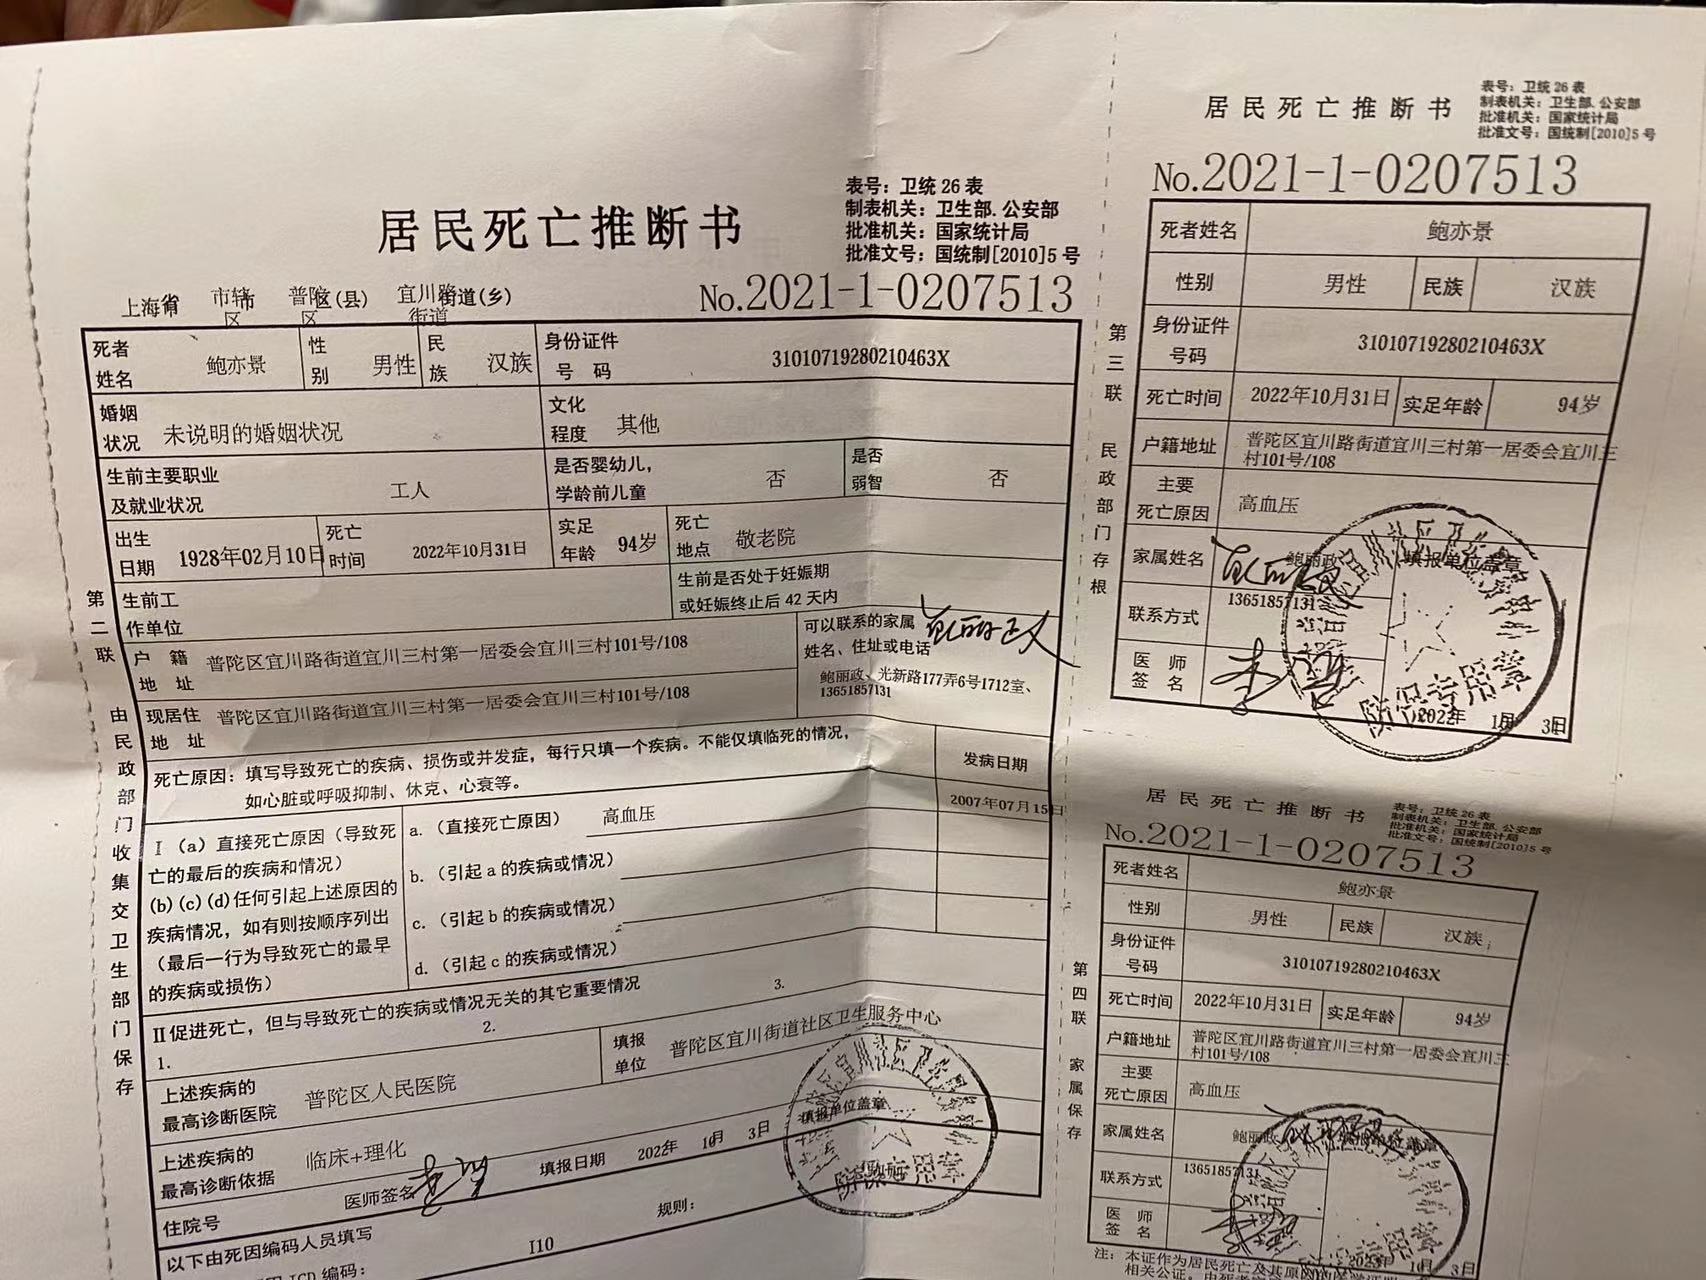 居民死亡推断书
表号：卫统26表
制表机关：卫生部.公安部
批准机关：国家统计局
批准文号：国统制[2010]5号
上海省 市辖区市 普陀区区(县) 宜川路街道街道(乡)
No.2021-1-0207513
死者姓名 鲍亦景 性别 男性 民族 汉族 身份证件号码 31010719280210463X
婚姻状况 未说明的婚姻状况 文化程度 其他
生前主要职业及就业状况 工人 是否婴幼儿，学龄前儿童 否 是否弱智 否
出生日期 1928年02月10日 死亡时间 2022年10月31日 实足年龄 94岁 死亡地点 敬老院
生前工作单位 生前是否处于妊娠期或妊娠终止后42天内
户籍地址 普陀区宜川路街道宜川三村第一居委会宜川三村101号/108
可以联系的家属姓名、住址或电话 鲍丽政
鲍丽政、光新路177弄6号1712室、
13651857131
现居住地址 普陀区宜川路街道宜川三村第一居委会宜川三村101号/108
死亡原因：填写导致死亡的疾病、损伤或并发症，每行只填一个疾病。不能仅填临死的情况，
如心脏或呼吸抑制、休克、心衰等。
发病日期
Ⅰ (a)直接死亡原因（导致死
亡的最后的疾病和情况）
(b)(c)(d)任何引起上述原因的
疾病情况，如有则按顺序列出
（最后一行为导致死亡的最早
的疾病或损伤）
a.（直接死亡原因） 高血压 2007年07月15日
b.（引起a的疾病或情况）
c.（引起b的疾病或情况）
d.（引起c的疾病或情况）
Ⅱ促进死亡，但与导致死亡的疾病或情况无关的其它重要情况
1. 2. 3.
上述疾病的最高诊断医院 普陀区人民医院 填报单位 普陀区宜川街道社区卫生服务中心
填报单位盖章
防保专用章
上述疾病的最高诊断依据 临床+理化
医师签名 填报日期 2022年 10月 3日
住院号
以下由死因编码人员填写 规则：
ICD编码： I10
第二联 由民政部门收集交卫生部门保存
居民死亡推断书
表号：卫统26表
制表机关：卫生部.公安部
批准机关：国家统计局
批准文号：国统制[2010]5号
No.2021-1-0207513
死者姓名 鲍亦景
性别 男性 民族 汉族
身份证件号码 31010719280210463X
死亡时间 2022年10月31日 实足年龄 94岁
户籍地址 普陀区宜川路街道宜川三村第一居委会宜川三
村101号/108
主要死亡原因 高血压
家属姓名 鲍丽政 填报单位盖章
联系方式 13651857131
医师签名
防保专用章
2022年 1月 3日
第三联 民政部门存根
居民死亡推断书
表号：卫统26表
制表机关：卫生部.公安部
批准机关：国家统计局
批准文号：国统制[2010]5号
No.2021-1-0207513
死者姓名 鲍亦景
性别 男性 民族 汉族
身份证件号码 31010719280210463X
死亡时间 2022年10月31日 实足年龄 94岁
户籍地址 普陀区宜川路街道宜川三村第一居委会宜川三
村101号/108
主要死亡原因 高血压
家属姓名 鲍丽政
联系方式 13651857131
医师签名
10月 3日
第四联 家属保存
注：本证作为居民死亡及其原
相关公证。